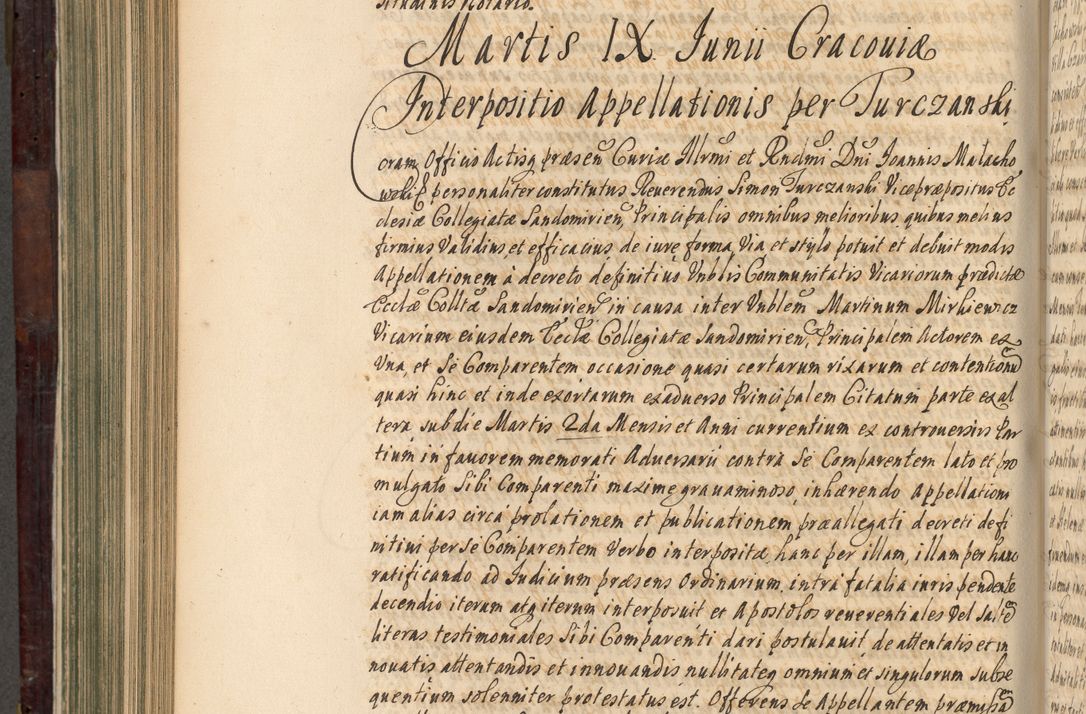 Martis IX Junii Cracouiæ
Interpositio Appellationis per Turczanski
coram Officio Actisq præsen Curiæ Illrmi et Rndmi Dni Joannis Malacho
wski E personaliter constitutus Reuerendus Simon Turczanski Vicepræpositus Ec
clesiæ Collegiatæ Sandomirien, Principalis omnibus melioribus quibus melius
firmius validius et efficacius de iure forma via et stylo potuit et debuit modis
Appellationem à decreto definitiuo Vnblis Communitatis Vicariorum prædictæ
Ecclæ Colltæ Sandomirien in causa inter Vnblem Martinum Mirkiewicz
Vicarium eiusdem Ecclæ Collegiatæ Sandomirien, Principalem Actorem ex
Vna, et Se Comparentem occasione quasi certarum rixarum et contentionũ
quasi hinc et inde exortarum exaduerso Principalem Citatum parte ex al
tera sub die Martis 2da Mensis et Anni currentium ex controuersiis Par
tium in fauorem memorati Aduersarii contra Se Comparentem lato et pro
mulgato Sibi Comparenti maxime grauaminoso, inhærendo Appellationi
iam alias circa prolationem et publicationem præallegati decreti defi
nitiui per Se Comparentem Verbo interpositæ, hanc per illam, illam per hanc
ratificando ad Judicium præsens Ordinarium intra fatalia iuris pendente
decendio iterum atq iterum interposuit et Apostolos reuerentiales Vel saltẽ
literas testimoniales Sibi Comparenti dari postulauit, de attentatis et in
nouatis attentandis et innouandis nullitateq omnium et singulorum subse
quentium solenniter protestatus est. Offerens Se Appellantem præmissã